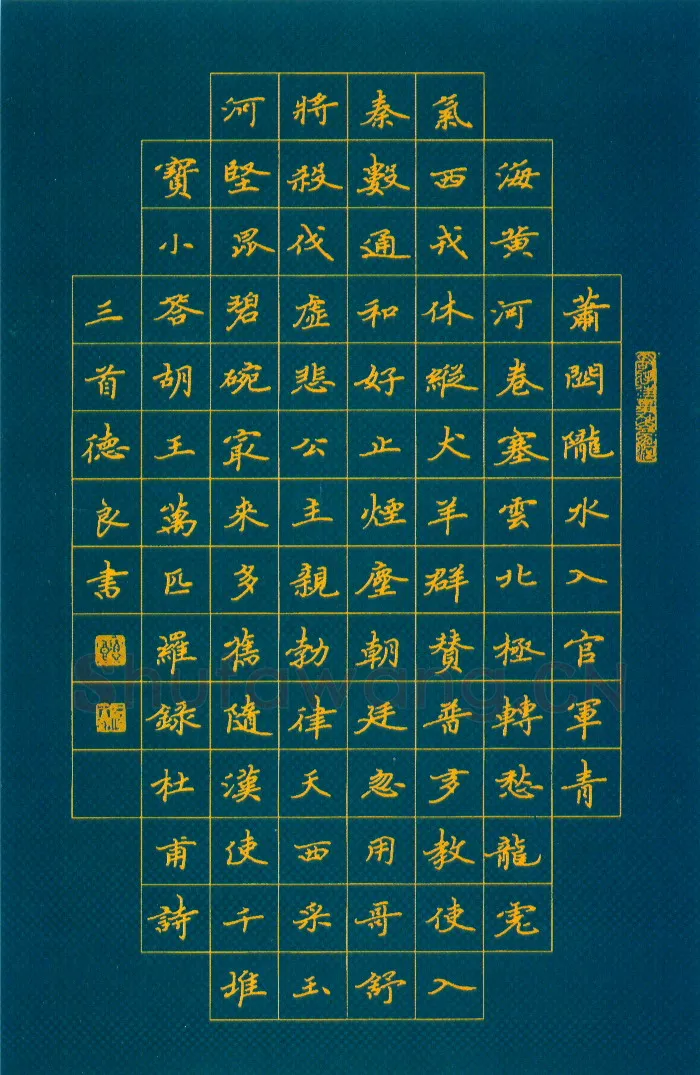 蕭關隴水入官軍青
海黃河卷塞雲北極轉愁龍虎
氣西戎休縱犬羊群贊普多教使入
秦數通和好止煙塵朝廷忽用哥舒
將殺伐虛悲公主親勃律天西采玉
河堅昆碧碗最來多舊隨漢使千堆
寶小答胡王萬匹羅錄杜甫詩
三首德良書
Shufawang.CN